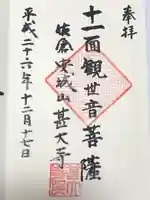 奉拝
十一面観世音菩薩
佐倉 安城山 甚大寺
平成二十六年十二月十七日